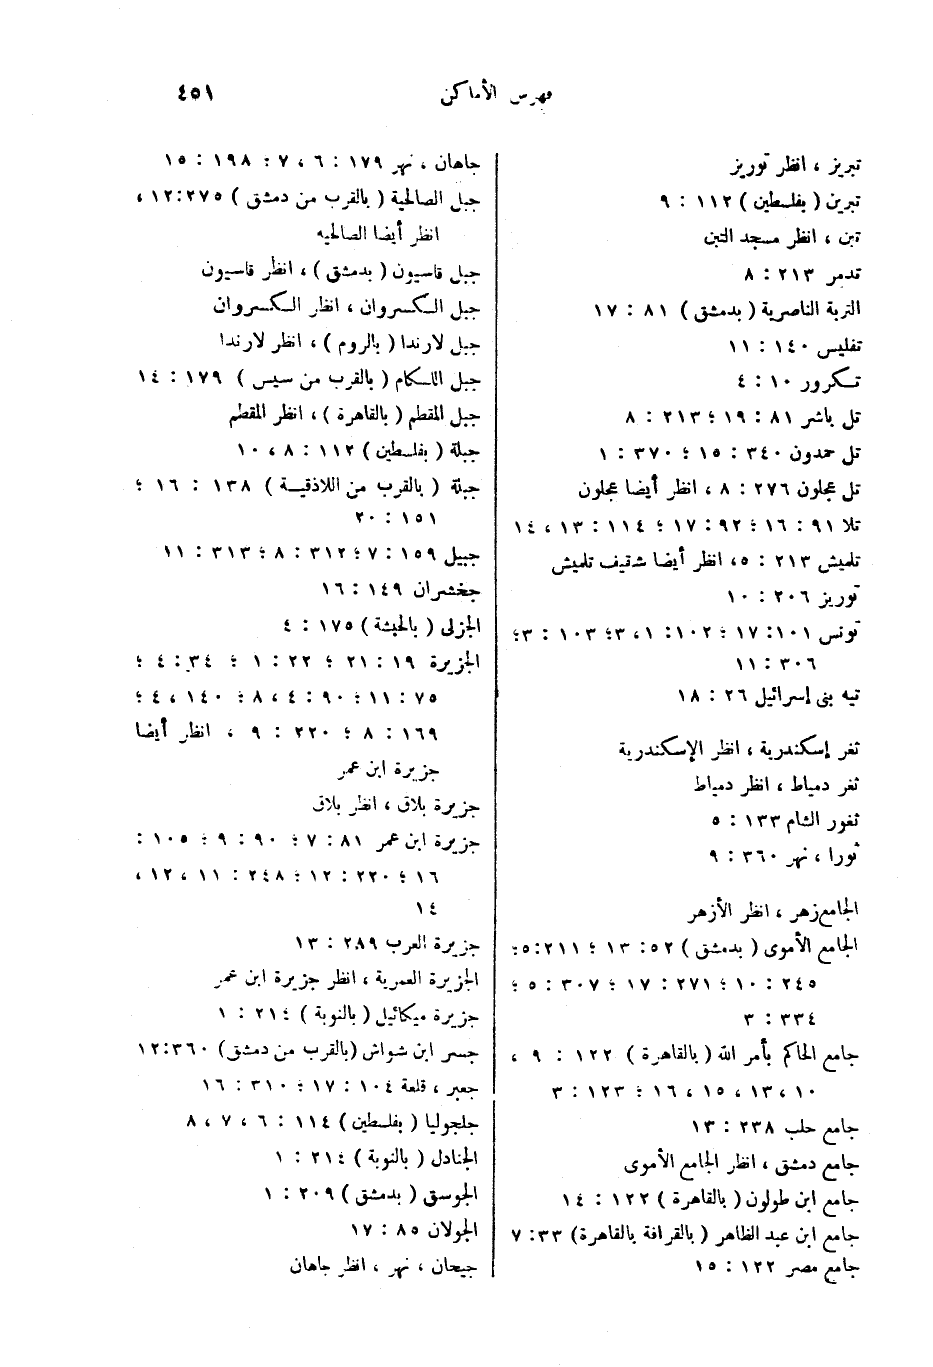 فهرس الأماكن ٤٥١
تبريز ، انظر توريز
تبرين ( بفلسطين ) ١١٢ : ٩
تبن ، انظر مسجد التبن
تدمر ٢١٣ : ٨
التربة الناصرية ( بدمشق ) ٨١ : ١٧
تفليس ١٤٠ : ١١
تكرور ١٠ : ٤
تل باشر ٨١ : ١٩ ؛ ٢١٣ : ٨
تل حمدون ٣٤٠ : ١٥ ؛ ٣٧٠ : ١
تل عجلون ٢٧٦ : ٨ ، انظر أيضا عجلون
تلا ٩١ : ١٦ ؛ ٩٢ : ١٧ ؛ ١١٤ : ١٣ ، ١٤
تلميش ٢١٣ : ٥ ، انظر أيضا شقيف تلميش
توريز ٢٠٦ : ١٠
تونس ١٠١ : ١٧ ؛ ١٠٢ : ١ ، ٣ ؛ ١٠٣ : ٣ ؛
٣٠٦ : ١١
تيه بنى إسرائيل ٢٦ : ١٨
ثغر إسكندرية ، انظر الإسكندرية
ثغر دمياط ، انظر دمياط
ثغور الشام ١٣٣ : ٥
ثورا ، نهر ٣٦٠ : ٩
الجامع زهر ، انظر الأزهر
الجامع الأموى ( بدمشق ) ٥٢ : ١٣ ؛ ٢١١ : ٥ ؛
٢٤٥ : ١٠ ؛ ٢٧١ : ١٧ ؛ ٣٠٧ : ٥ ؛
٣٣٤ : ٣
جامع الحاكم بأمر الله ( بالقاهرة ) ١٢٢ : ٩ ،
١٠ ، ١٣ ، ١٥ ، ١٦ ؛ ١٢٣ : ٣
جامع حلب ٢٣٨ : ١٣
جامع دمشق ، انظر الجامع الأموى
جامع ابن طولون ( بالقاهرة ) ١٢٢ : ١٤
جامع ابن عبد الظاهر ( بالقرافة بالقاهرة ) ٣٣ : ٧
جامع مصر ١٢٢ : ١٥
جاهان ، نهر ١٧٩ : ٦ ، ٧ ؛ ١٩٨ : ١٥
جبل الصالحية ( بالقرب من دمشق ) ٢٧٥ : ١٢ ،
انظر أيضا الصالحيه
جبل قاسيون ( بدمشق ) ، انظر قاسيون
جبل الكسروان ، انظر الكسروان
جبل لارندا ( بالروم ) ، انظر لارندا
جبل اللكام ( بالقرب من سيس ) ١٧٩ : ١٤
جبل المقطم ( بالقاهرة ) ، انظر المقطم
جبلة ( بفلسطين ) ١١٢ : ٨ ، ١٠
جبلة ( بالقرب من اللاذقية ) ١٣٨ : ١٦ ؛
١٥١ : ٢٠
جبيل ١٥٩ : ٧ ؛ ٣١٢ : ٨ ؛ ٣١٣ : ١١
جخشران ١٤٩ : ١٦
الجزلى ( بالحبشة ) ١٧٥ : ٤
الجزيرة ١٩ : ٢١ ؛ ٢٢ : ١ ؛ ٣٤ : ٤ ؛
٧٥ : ١١ ؛ ٩٠ : ٤ ، ٨ ؛ ١٤٠ ، ٤ ؛
١٦٩ : ٨ ؛ ٢٢٠ : ٩ ، انظر أيضا
جزيرة ابن عمر
جزيرة بلاق ، انظر بلاق
جزيرة ابن عمر ٨١ : ٧ ؛ ٩٠ : ٩ ؛ ١٠٥ :
١٦ ؛ ٢٢٠ : ١٢ ؛ ٢٤٨ : ١١ ، ١٢ ،
١٤
جزيرة العرب ٢٨٩ : ١٣
الجزيرة العمرية ، انظر جزيرة ابن عمر
جزيرة ميكائيل ( بالنوبة ) ٢١٤ : ١
جسر ابن شواش ( بالقرب من دمشق ) ٣٦٠ : ١٢
جعبر ، قلعة ١٠٤ : ١٧ ؛ ٣١٠ : ١٦
جلجوليا ( بفلسطين ) ١١٤ : ٦ ، ٧ ، ٨
الجنادل ( بالنوبة ) ٢١٤ : ١
الجوسق ( بدمشق ) ٢٠٩ : ١
الجولان ٨٥ : ١٧
جيحان ، نهر ، انظر جاهان